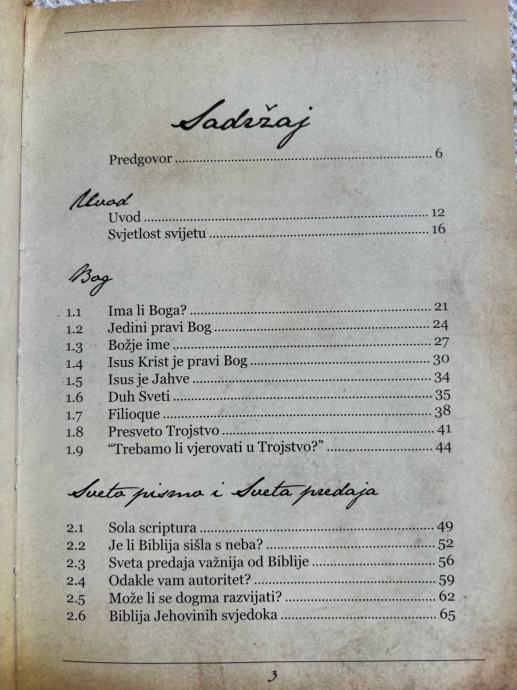 Sadržaj
Predgovor ........ 6
Uvod
Uvod ........ 12
Svjetlost svijetu ........ 16
Bog
1.1 Ima li Boga? ........ 21
1.2 Jedini pravi Bog ........ 24
1.3 Božje ime ........ 27
1.4 Isus Krist je pravi Bog ........ 30
1.5 Isus je Jahve ........ 34
1.6 Duh Sveti ........ 35
1.7 Filioque ........ 38
1.8 Presveto Trojstvo ........ 41
1.9 “Trebamo li vjerovati u Trojstvo?” ........ 44
Sveto pismo i Sveta predaja
2.1 Sola scriptura ........ 49
2.2 Je li Biblija sišla s neba? ........ 52
2.3 Sveta predaja važnija od Biblije ........ 56
2.4 Odakle vam autoritet? ........ 59
2.5 Može li se dogma razvijati? ........ 62
2.6 Biblija Jehovinih svjedoka ........ 65
3